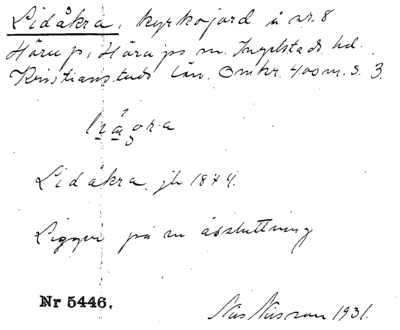 Lidåkra, kyrkojord å nr. 8
Hörup, Hörups sn. Ingelstads hd.
Kristianstads län. Omkr. 400 m. S. 3.
Lidåkra, jb 1844.
Ligger på en åssluttning
Nr 5446.
Nils Nilsson 1931.